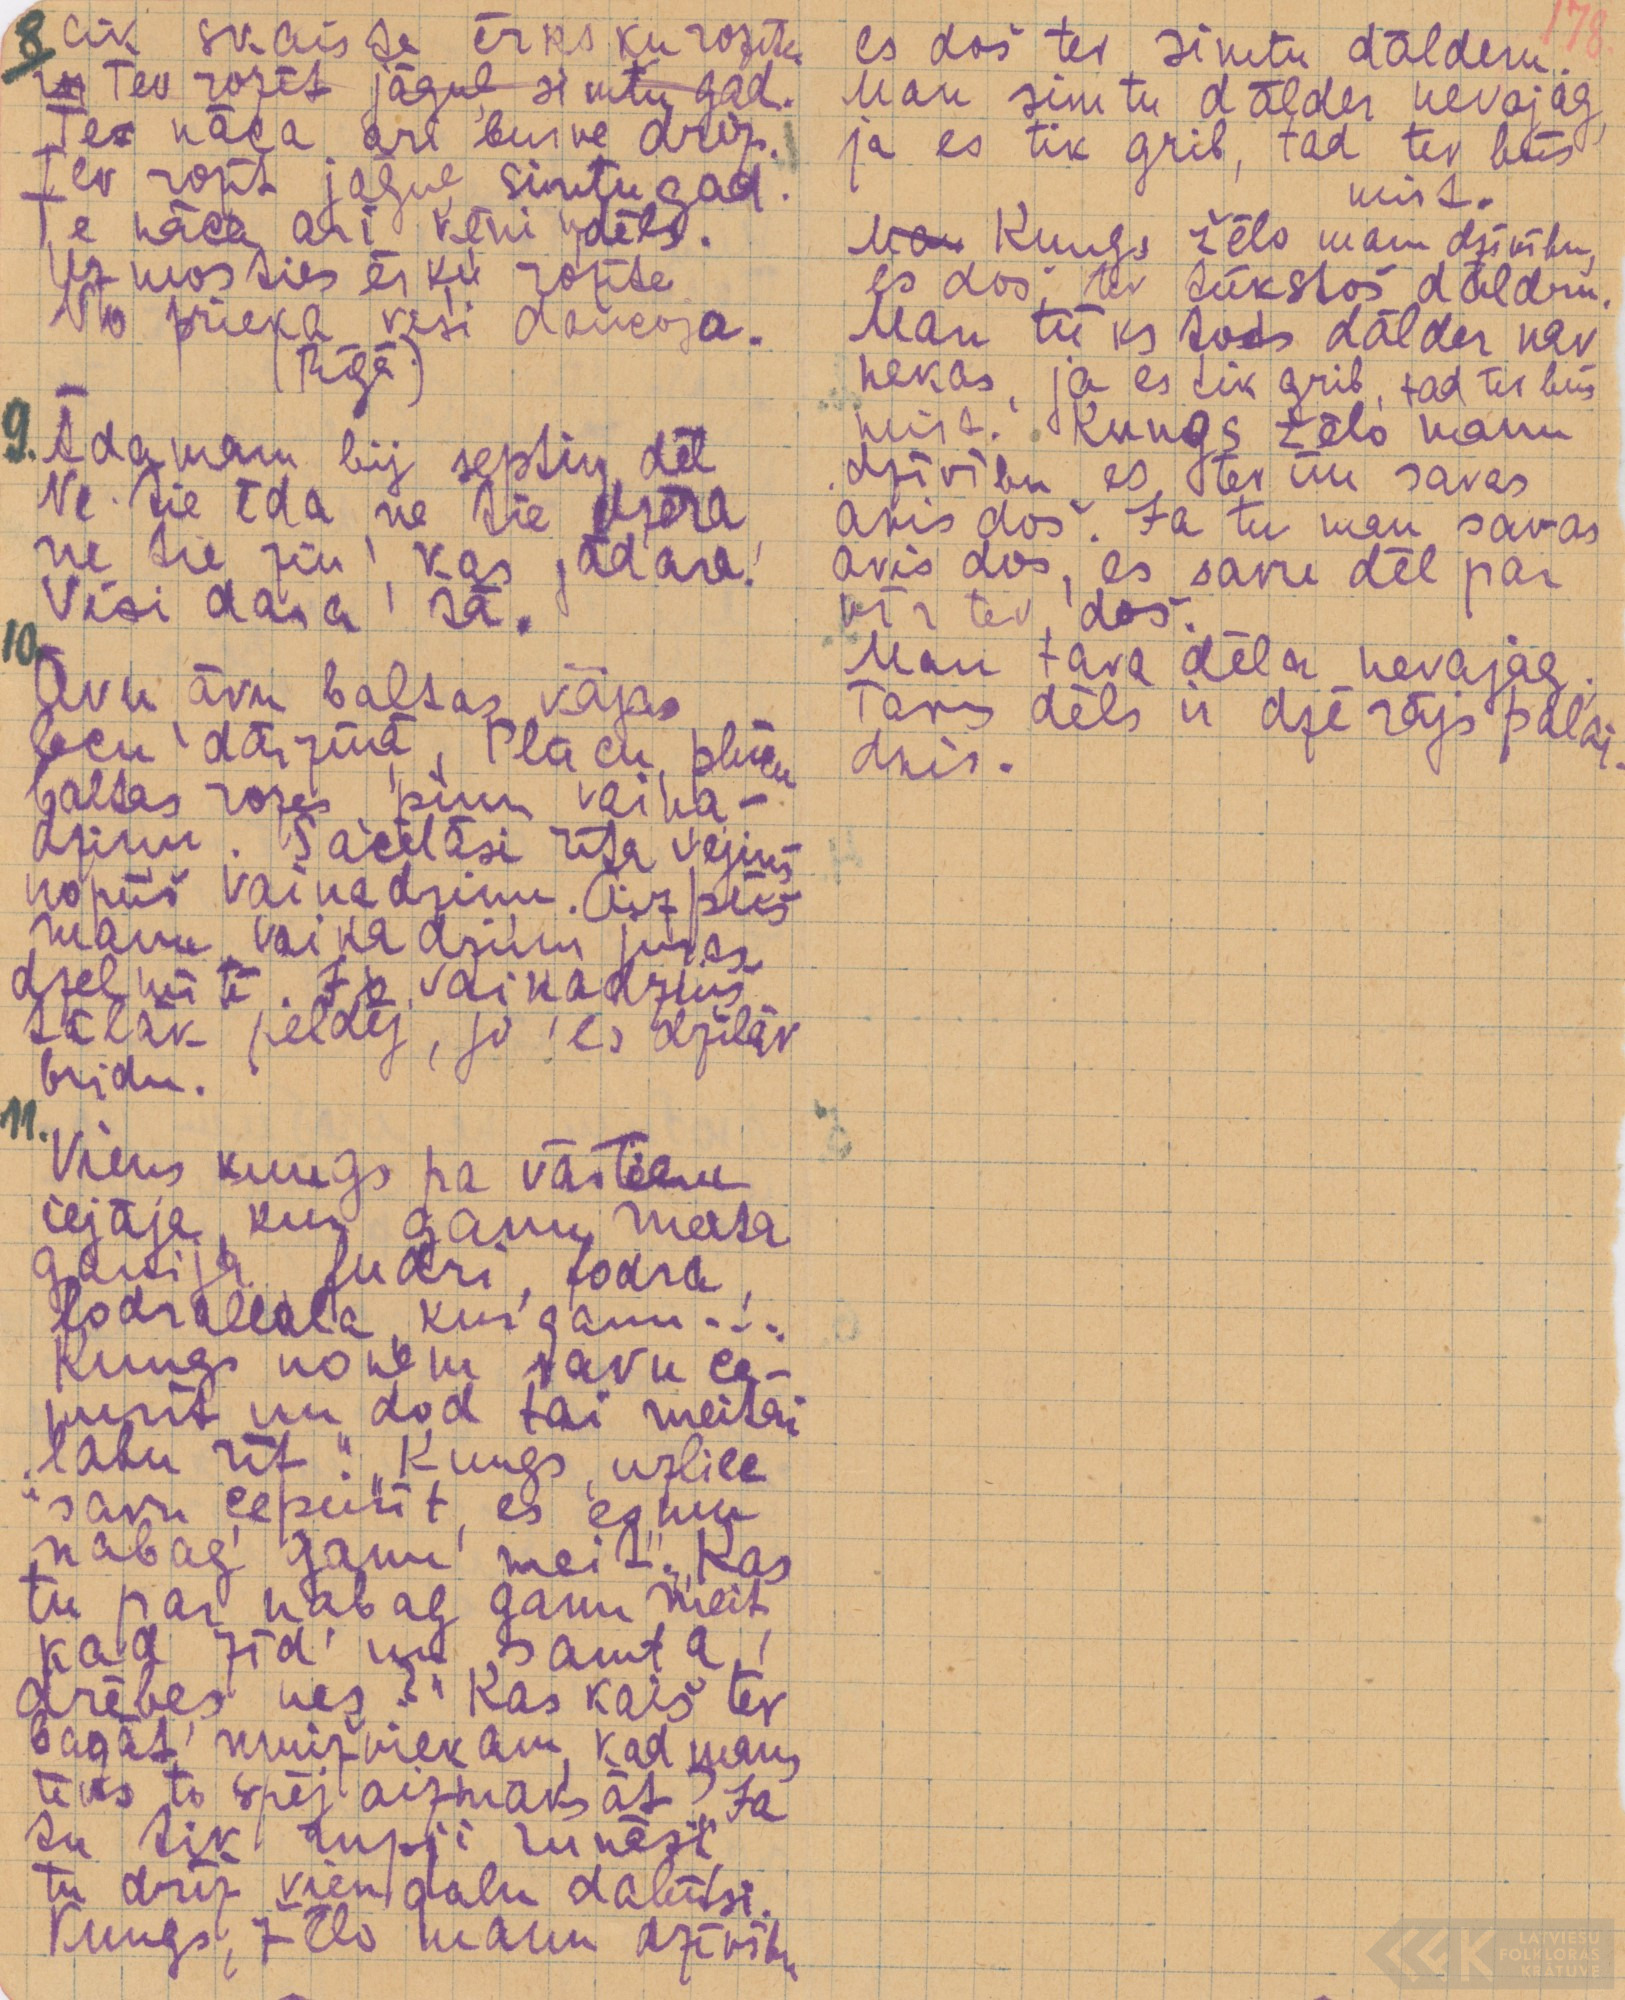 178.
8 cik skaista ērkšku rozīte
Tev rozīt jāguļ simtu gad.
Te nāca ari burve drīz.
Tev rozīt jāguļ simtu gad.
Te nāca ari ķēniņdēls.
Uzmosties ērkšķ rozīte
No prieka visi dancoja.
(Rīgā)
9. Ādamam bij septiņ dēl
Ne tie ēda ne tie dzēra
ne tie zin', kas jādara!
Visi dara tā.
10.
Āvu āvu baltas kājas
lecu dārziņā, Plūcu, plūcu
baltas rozes, pinu vaiņa-
dziņu. Sacēlāsi rīta vējiņš
nopūš vaiņadziņu. Aizpūš
manu vaiņadziņu jūras
dzelmītē. Jo vaiņadziņš
tālāk peldēj, jo es dziļāk
bridu.
11.
Viens kungs pa vārtiem
iejāja, kur ganu meita
ganija fudri, fodra,
lodrallala, kur ganu...
Kungs noņem savu ce-
purīt un dod tai meitai
„labu rīt". „Kungs, uzliec
savu cepurīt, es esmu
nabag ganu meit". „Kas
tu par nabag ganu meit,
kad zīd' un samta
drēbes nes?" Kas kaiš tev
bagāt' muižniekam, kad mans
tēvs to spēj aizmaksāt? Ja
tu tik rupji runāsi,
tu drīz vien galu dabūsi.
Kungs, žēlo manu dzīvību
es doš tev simtu dālderu.
Man simtu dālder nevajag,
ja es tik grib, tad tev būs
mirt.
Man Kungs žēlo manu dzīvību,
es doš tev tūkstoš dālderu.
Man tūkstošs dālder nav
nekas, ja es tik grib, tad tev būs
mirt. Kungs žēlo manu
dzīvību, es tev un savas
avis doš. Ja tu man savas
avis dos, es savu dēl par
vīr tev doš.
Man tava dēla nevajag.
Tavs dēls ir dzērājs palai-
dnis.
LATVIEŠU
FOLKLORAS
KRĀTUVE